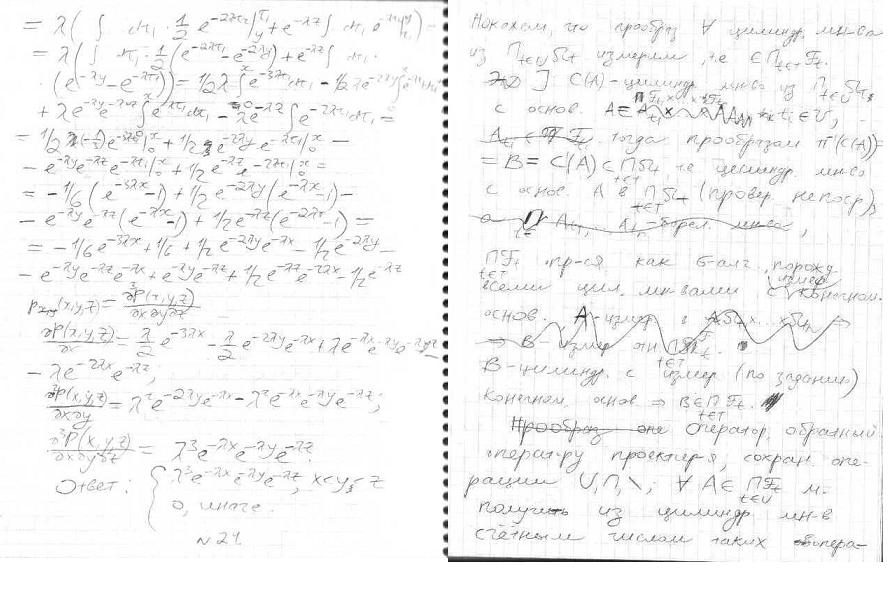 = λ( ∫ dτ₁ · 1/2 e^{-2λτ₂}|_y^{τ₁} + e^{-λz} ∫ dτ₁
= λ( ∫ dτ₁ · 1/2 (e^{-2λτ₁} - e^{-2λy}) + e^{-λz} ∫ dτ₁ ·
· (e^{-λy} - e^{-λτ₁})) = 1/2 λ ∫ e^{-3λτ₁} dτ₁ - 1/2 λ e^{-2λy} ∫ e^{-λτ₁} dτ₁
+ λ e^{-λy} e^{-λz} ∫ e^{-λτ₁} dτ₁ - λ e^{-λz} ∫ e^{-2λτ₁} dτ₁ =
= 1/2 · (-1/3) e^{-3λτ₁}|_0^x + 1/2 e^{-2λy} e^{-λτ₁}|_0^x -
- e^{-λy} e^{-λz} e^{-λτ₁}|_0^x + 1/2 e^{-λz} e^{-2λτ₁}|_0^x =
= -1/6 (e^{-3λx} - 1) + 1/2 e^{-2λy} (e^{-λx} - 1) -
- e^{-λy} e^{-λz} (e^{-λx} - 1) + 1/2 e^{-λz} (e^{-2λx} - 1) =
= -1/6 e^{-3λx} + 1/6 + 1/2 e^{-2λy} e^{-λx} - 1/2 e^{-2λy} -
- e^{-λy} e^{-λz} e^{-λx} + e^{-λy} e^{-λz} + 1/2 e^{-λz} e^{-2λx} - 1/2 e^{-λz}
(x,y,z) = ∂³P(x,y,z)/∂x∂y∂z
∂P(x,y,z)/∂x = λ/2 e^{-3λx} - λ/2 e^{-2λy} e^{-λx} + λ e^{-λx} e^{-λy} e^{-λz} -
- λ e^{-2λx} e^{-λz};
∂²P(x,y,z)/∂x∂y = λ² e^{-2λy} e^{-λx} - λ² e^{-λx} e^{-λy} e^{-λz};
∂³P(x,y,z)/∂x∂y∂z = λ³ e^{-λx} e^{-λy} e^{-λz}
Ответ: { λ³ e^{-λx} e^{-λy} e^{-λz}, x<y≤z
0, иначе
№ 21
Покажем, что прообраз ∀ цилиндр. мн-ва
из Π_{t∈U} Ω_t измерим, т.е. ∈ Π_{t∈T} F_t.
] C(A) - цилиндр. мн-во из Π_{t∈U} Ω_t
с основ. A ∈ t_i ∈ U,
тогда прообразом π(C(A)) =
= B = C(A) ⊂ Π_{t∈T} Ω_t, т.е. цилиндр. мн-во
с основ. A в Π_{t∈T} Ω_t (провер. непоср.)
Π_{t∈T} F_t опр-ся как σ-алг., порожд.
всеми цил. мн-вами с измер. конечном.
основ.
B - цилиндр. с измер. (по заданию)
конечном основ. ⇒ B ∈ Π_{t∈T} F_t.
Оператор, обратный
оператору проектир-я, сохран. опе-
рации ∪, ∩, \; ∀ A ∈ Π_{t∈U} F_t м.
получить из цилиндр. мн-в
счётным числом таких опера-